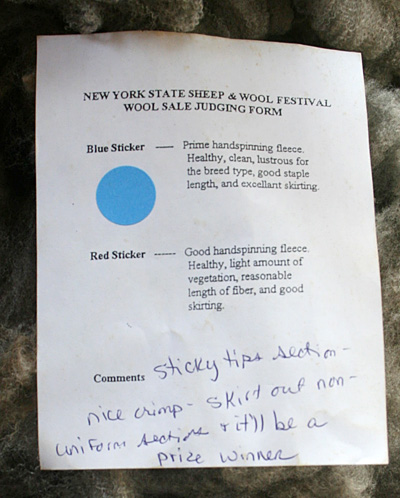 NEW YORK STATE SHEEP & WOOL FESTIVAL
WOOL SALE JUDGING FORM
Blue Sticker ---- Prime handspinning fleece.
Healthy, clean, lustrous for
the breed type, good staple
length, and excellant skirting.
Red Sticker ------ Good handspinning fleece.
Healthy, light amount of
vegetation, reasonable
length of fiber, and good
skirting.
Comments sticky tips section -
nice crimp - skirt out non-
uniform sections & it'll be a
prize winner